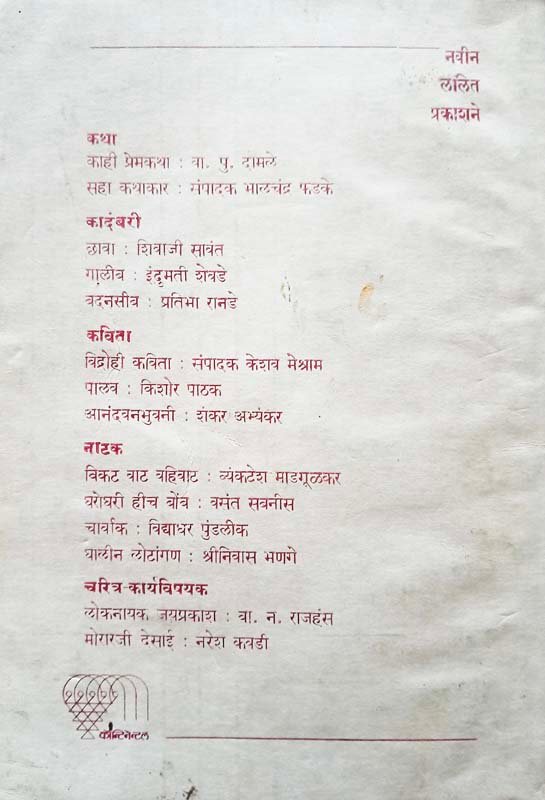 नवीन
ललित
प्रकाशने
कथा
काही प्रेमकथा : वा. पु. दामले
सहा कथाकार : संपादक भालचंद्र फडके
कादंबरी
छावा : शिवाजी सावंत
गालीव : इंदुमती शेवडे
बदनसीव : प्रतिभा रानडे
कविता
विद्रोही कविता : संपादक केशव मेश्राम
पालव : किशोर पाठक
आनंदवनभुवनी : शंकर अभ्यंकर
नाटक
विकट वाट वहिवाट : व्यंकटेश माडगूळकर
घरोघरी हीच बोंब : वसंत सबनीस
चार्वाक : विद्याधर पुंडलीक
घालीन लोटांगण : श्रीनिवास भणगे
चरित्र-कार्यविषयक
लोकनायक जयप्रकाश : वा. न. राजहंस
मोरारजी देसाई : नरेश कवडी
कॉन्टिनेन्टल